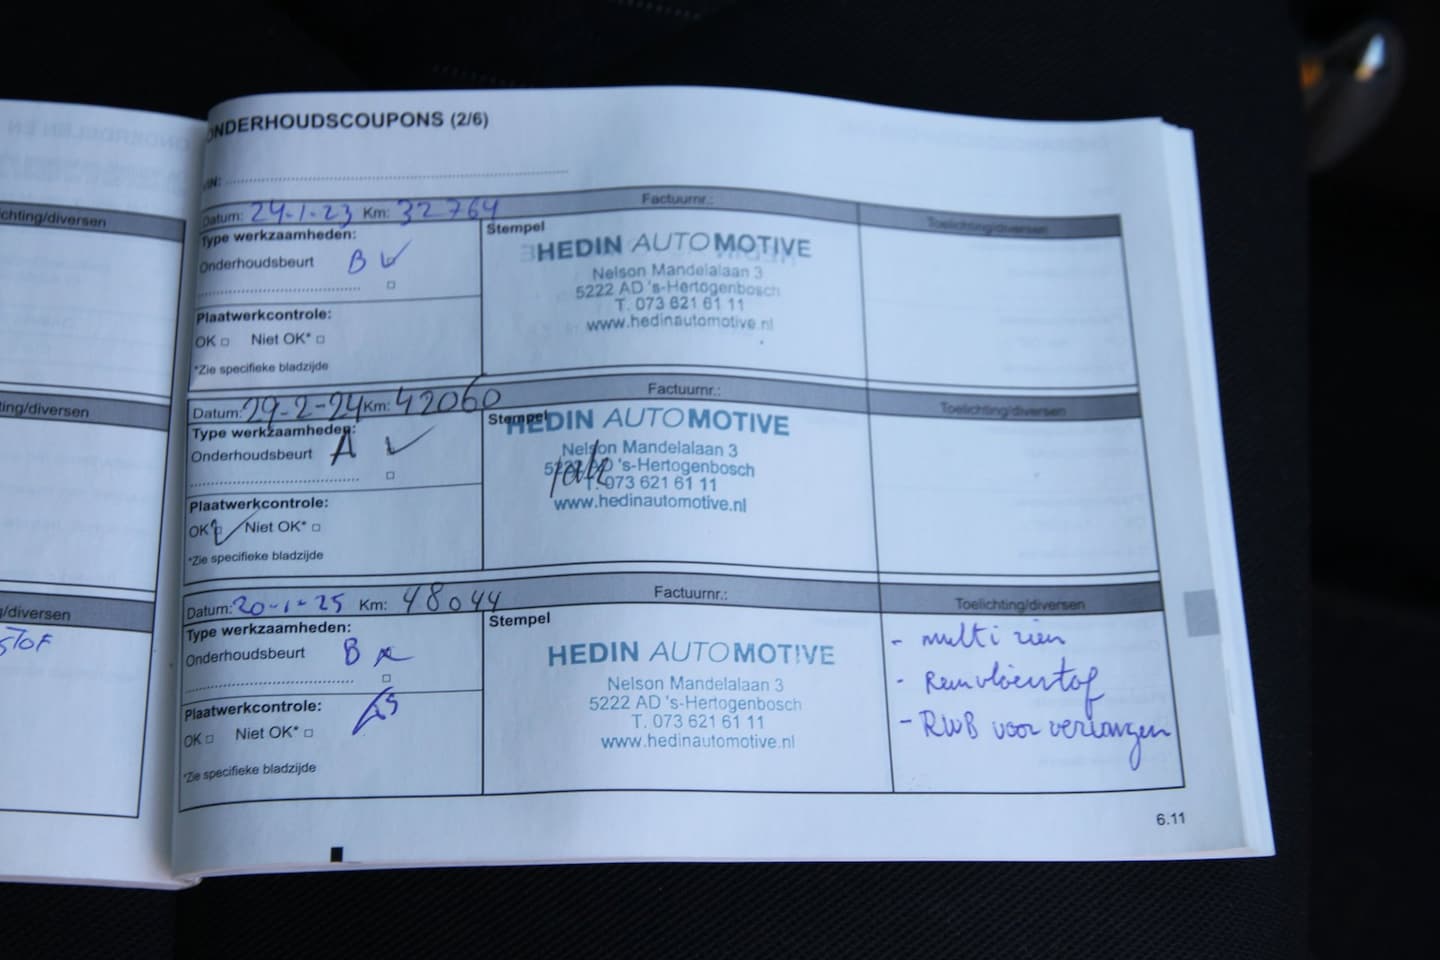 ONDERHOUDSCOUPONS (2/6)
VIN:
Datum: 24-1-23 Km: 32764 Factuurnr.: Toelichting/diversen
Type werkzaamheden:
Onderhoudsbeurt B
Plaatwerkcontrole:
OK Niet OK*
*Zie specifieke bladzijde
Stempel
HEDIN AUTOMOTIVE
Nelson Mandelalaan 3
5222 AD 's-Hertogenbosch
T. 073 621 61 11
www.hedinautomotive.nl
Datum: 29-2-24 Km: 42060 Factuurnr.: Toelichting/diversen
Type werkzaamheden:
Onderhoudsbeurt A
Plaatwerkcontrole:
OK Niet OK*
*Zie specifieke bladzijde
Stempel
HEDIN AUTOMOTIVE
Nelson Mandelalaan 3
5222 AD 's-Hertogenbosch
T. 073 621 61 11
www.hedinautomotive.nl
Datum: 20-1-25 Km: 48044 Factuurnr.: Toelichting/diversen
Type werkzaamheden:
Onderhoudsbeurt B
Plaatwerkcontrole:
OK Niet OK*
*Zie specifieke bladzijde
Stempel
HEDIN AUTOMOTIVE
Nelson Mandelalaan 3
5222 AD 's-Hertogenbosch
T. 073 621 61 11
www.hedinautomotive.nl
- multi riem
- Remvloeistof
- RWB voor vervangen
6.11
chting/diversen
ting/diversen
/diversen
STOF